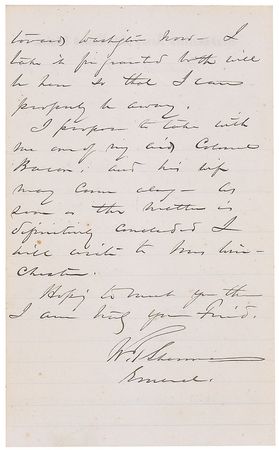 toward Washington now— I
take it for granted both will
be here so that I can
properly be away.
I propose to take with
me one of my aids Colonel
Bacon, and his wife
may come along— As
soon as this matter is
definitely concluded I
will write to Miss Win-
chester.
Hoping to meet you then
I am truly your friend.
W. T. Sherman
General.